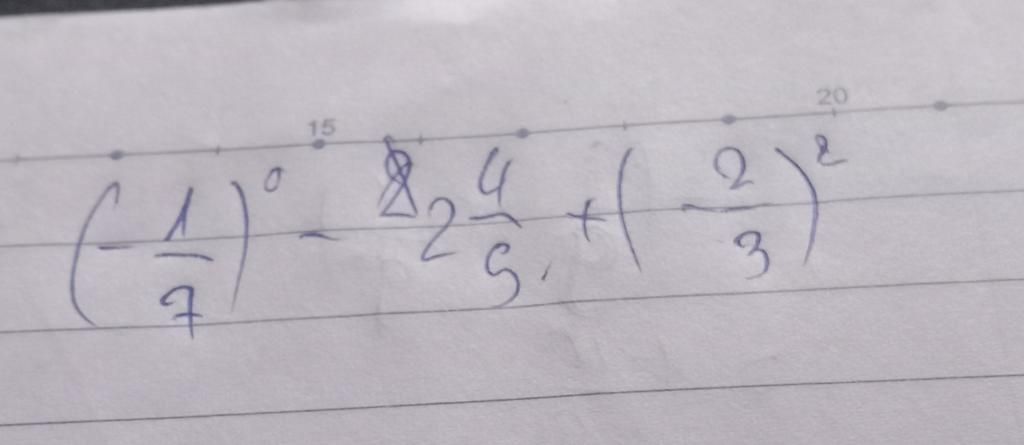 15 20
(-1/7)^0 - 2 4/5 + (-2/3)^2